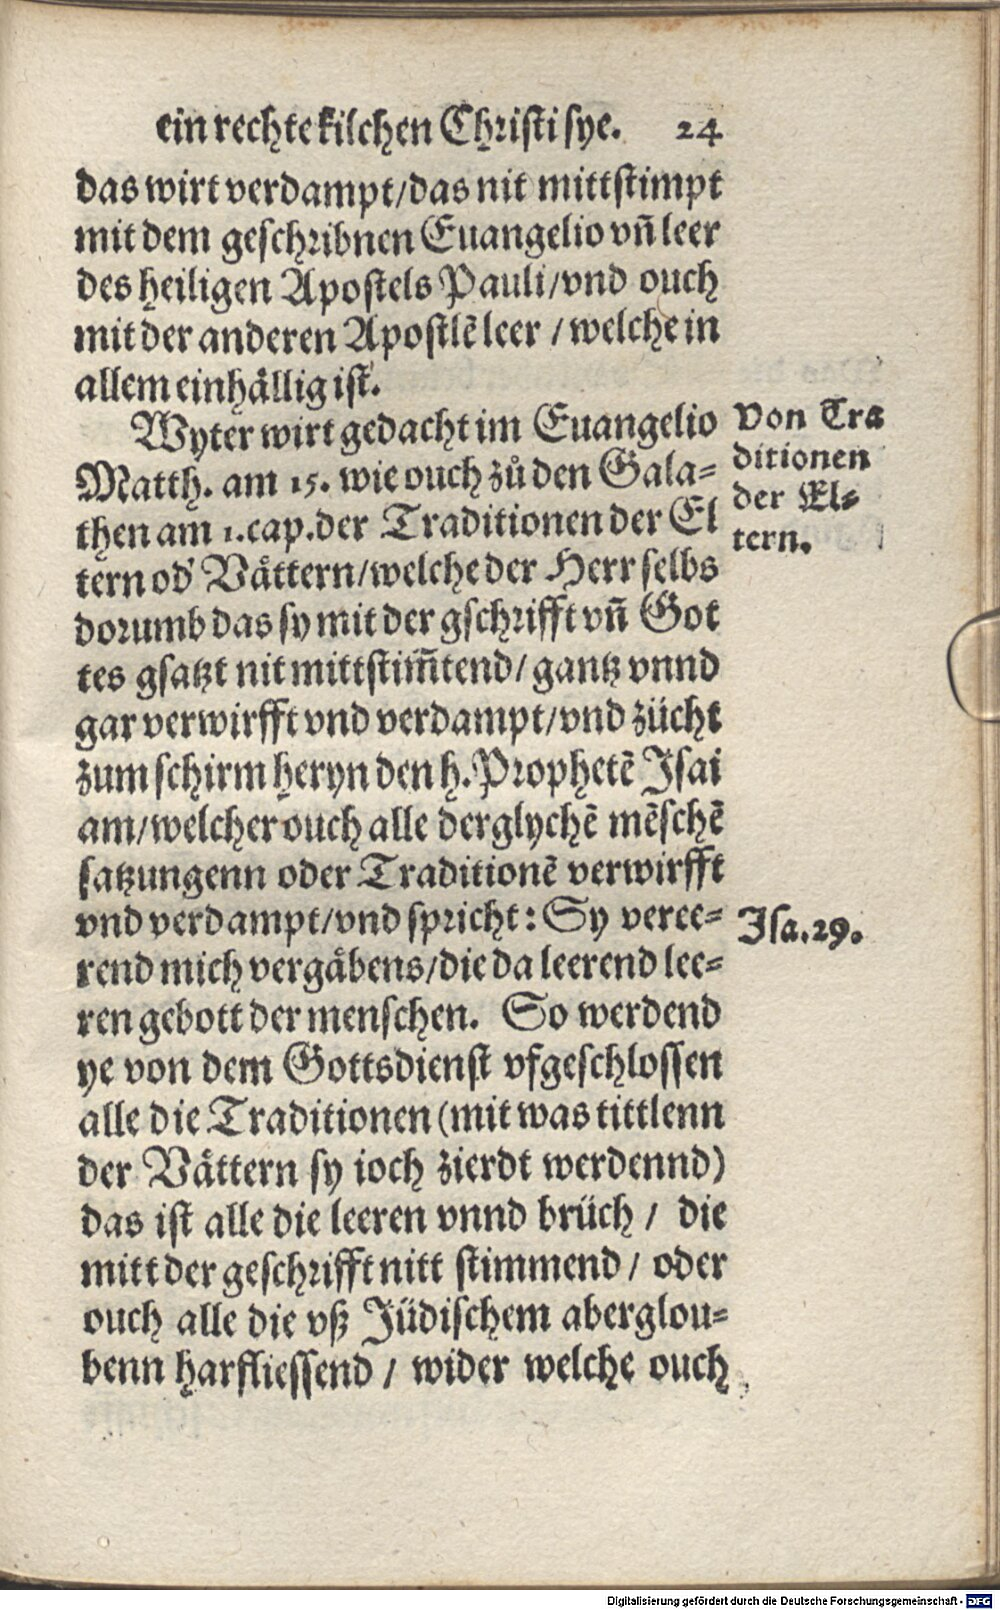 ein rechte kilchen Christi sye. 24
das wirt verdampt/das nit mittstimpt
mit dem geschribnen Euangelio vñ leer
des heiligen Apostels Pauli/vnd ouch
mit der anderen Apostlē leer /welche in
allem einhållig ist.
Wyter wirt gedacht im Euangelio
Matth. am 15. wie ouch zů den Gala-
then am 1.cap.der Traditionen der El
tern od' Våttern/welche der Herr selbs
dorumb das sy mit der gschrifft vñ Got
tes gsatzt nit mittstim̃tend/gantz vnnd
gar verwirfft vnd verdampt/vnd zücht
zum schirm heryn den h.Prophetē Jsai
am/welcher ouch alle derglychē mēschē
satzungenn oder Traditionē verwirfft
vnd verdampt/vnd spricht: Sy veree-
rend mich vergåbens/die da leerend lee-
ren gebott der menschen. So werdend
ye von dem Gottsdienst vfgeschlossen
alle die Traditionen (mit was tittlenn
der Våttern sy ioch zierdt werdennd)
das ist alle die leeren vnnd brüch / die
mitt der geschrifft nitt stimmend / oder
ouch alle die vß Jüdischem aberglou-
benn harfliessend / wider welche ouch
Von Tra
ditionen
der El-
tern.
Jsa.29.
Digitalisierung gefördert durch die Deutsche Forschungsgemeinschaft - DFG